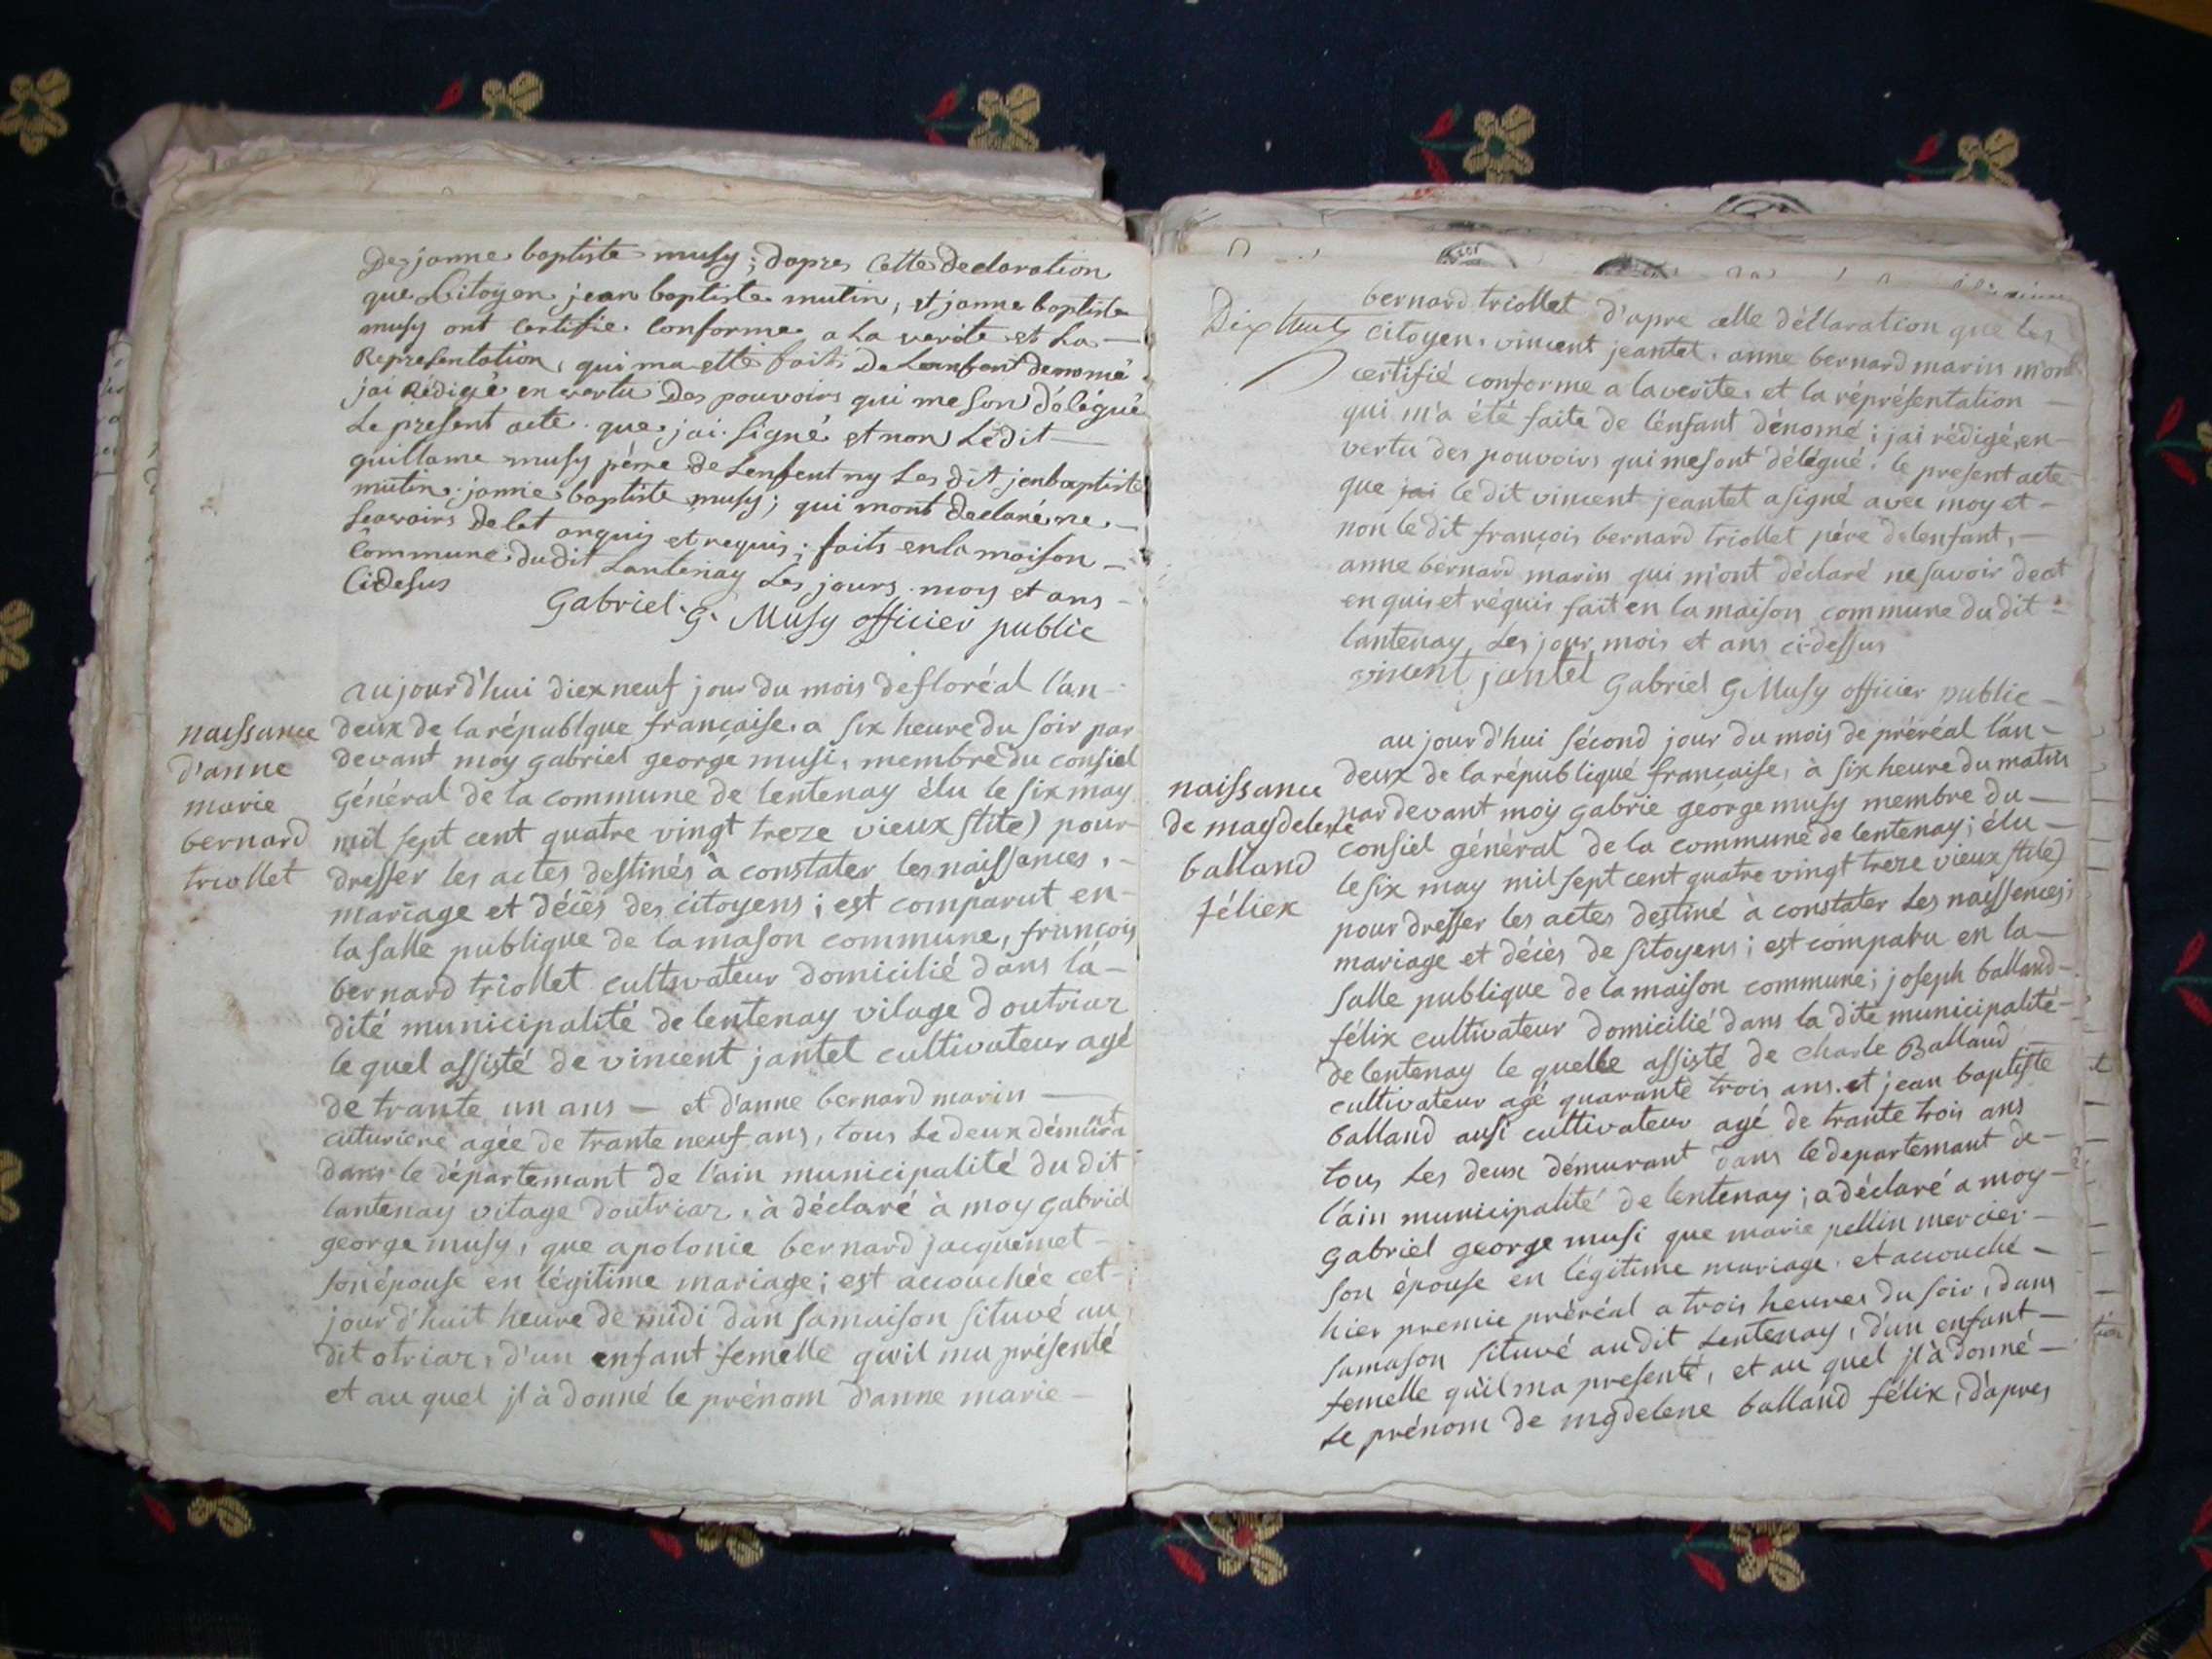 De janne baptiste musy; dapres Cette Declaration
que Citoyen jean baptiste mutin, et janne baptiste
musy ont Certifie Conforme a La verite et La —
Representation, qui ma ette faits De Lanfant denomé
jai Rédigé en vertu Des pouvoirs qui me Son délégué
Le present acte que jai Signé et non Lédit —
guillame musy pérre de Lenfent ny Les dit jenbaptiste
mutin janne baptiste musy; qui mont Declaré ne —
Scavoirs De let anquis et requis; faits en la maison —
Commune dudit Lantenay Les jours moy et ans
Cidesus
Gabriel G. Musy officier public
naissance
d'anne
marie
bernard
triollet
aujourd'hui diexneuf jour du mois defloréal l'an
deux de la républque française a six heure du soir par
devant moy gabriel george musi, membre du consiel
général de la commune de lentenay élu le six may
mil sept cent quatre vingt treze vieux stite) pour
dresser les actes destinés à constater les naissances, -
mariage et déiès des citoyens; est comparut en-
la salle publique de la mason commune, françois
bernard triollet cultivateur domicilié dans la-
dité municipalité de lentenay vilage doutriaz
le quel assisté de vincent jantet cultivateur agé
de trante un ans — et d'anne bernard marin —
cuturiere agée de trante neuf ans, tous Le deux démurant
dans le départemant de l'ain municipalité du dit
lantenay vilage doutriaz, à déclaré à moy gabriel
george musy, que apolonie bernard jacquemet -
son épouse en légitime mariage; est accouchée cet-
jour d'huit heure de midi dan samaison situvé au
dit otriaz, d'un enfant femelle qwil ma présenté
et au quel jl à donné le prénom d'anne marie —
Dix huit
bernard triollet d'apre celle déllaration que les
citoyen vincent jeantet anne bernard marin m'ont
certifié conforme a la verite et la réprésentation —
qui m'a été faite de l'énfant dénomé; jai rédigé en-
vertu des pouvoirs qui mesont délégué le present acte
que jai le dit vincent jeantet a signé avec moy et -
non le dit françois bernard triollet pére delenfant, —
anne bernard marin qui m'ont déclaré ne savoir de et
en quis et réquis fait en la maison commune du dit
lantenay Les jour mois et ans ci-dessus
vincent jantet Gabriel G Musy officier public
naissance
de maydelene
balland
féliex
aujourd'hui sécond jour du mois de préréal l'an -
deux de la républiqué française, à six heure du matin
par devant moy gabrie george musy membre du —
consiel général de la commune de lentenay; élu —
le six may mil sept cent quatre vingt treze vieux stile)
pour dresser les actes destiné à constater Les naissences;
mariage et déiès de sitoyens; est comparu en la —
salle publique de la maison commune; joseph balland -
félix cultivateur domicilié dans la dite municipalité -
de lentenay le quelle assisté de charle Balland
cultivateur agé quarante trois ans et jean baptiste
balland ausi cultivateur agé de trante trois ans
tous Les deux démurant dans le departemant de -
l'ain municipalité de lentenay; a déclaré a moy -
gabriel george musi que marie pellin mercier -
son épouse en légitime mariage et accouché -
hier premie préréal a trois heures du soir, dans
samason situvé au dit Lentenay, d'un enfant —
femelle qu'il ma presenté, et au quel jl à donné —
Le prénom de mgdelene balland félix, d'apres